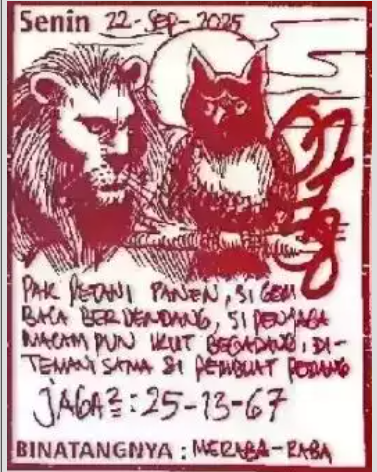 Senin 22-Sep-2025
PAK PETANI PANEN, SI GEM
BALA BERDENDANG, SI PENJAGA
MACAM PUN IKUT BEGADANG, DI-
TEMANI SAMA SI PEMBUAT PEDANG
JAGA2 : 25-13-67
BINATANGNYA : MERABA-RABA